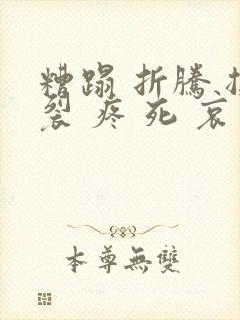 糟蹋 折騰
裂 疼 死 哀
本尊無雙